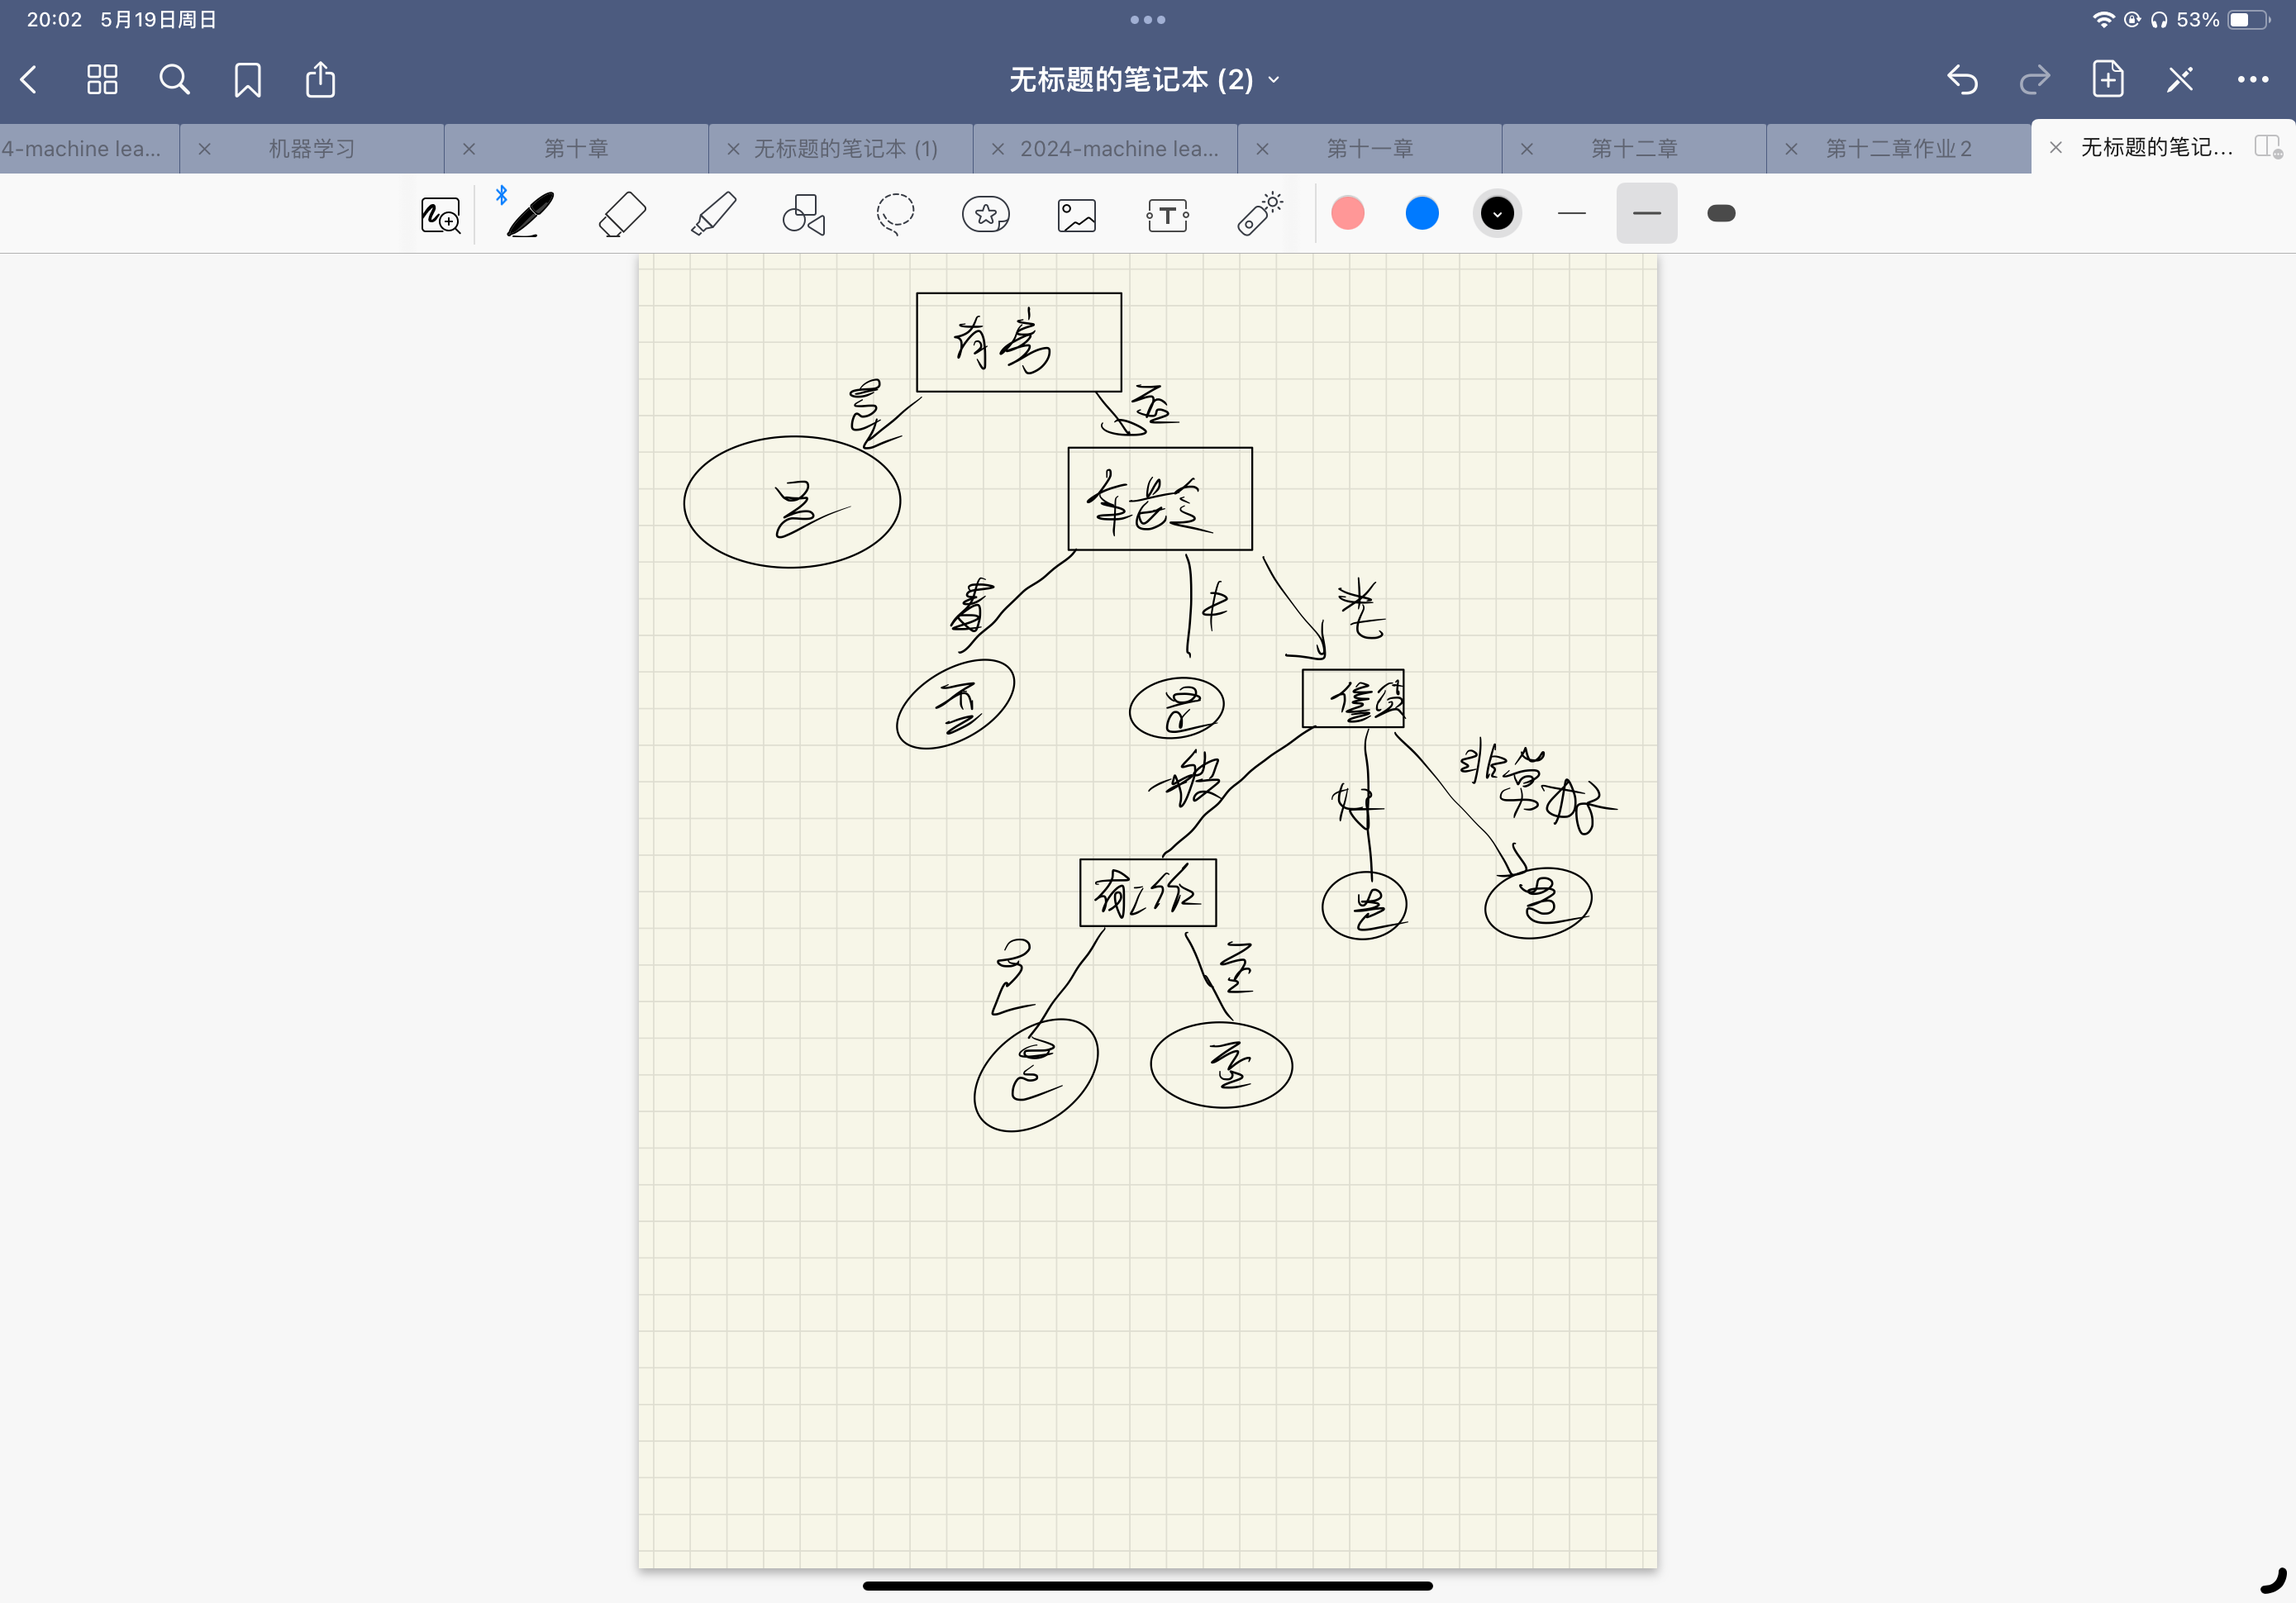 20:02 5月19日周日
53%
无标题的笔记本 (2)
4-machine lea...
机器学习
第十章
无标题的笔记本 (1)
2024-machine lea...
第十一章
第十二章
第十二章作业2
无标题的笔记...
有房
是
否
是
年龄
青
中
老
否
是
信贷
一般
好
非常好
有工作
是
是
是
否
是
否